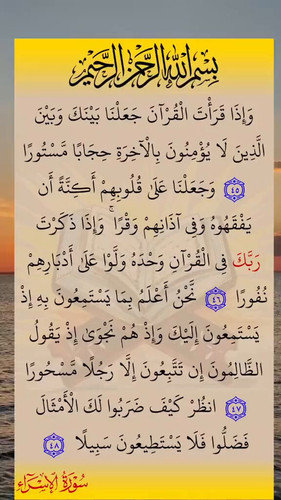 بِسْمِ اللَّهِ الرَّحْمَٰنِ الرَّحِيمِ
وَإِذَا قَرَأْتَ الْقُرْآنَ جَعَلْنَا بَيْنَكَ وَبَيْنَ
الَّذِينَ لَا يُؤْمِنُونَ بِالْآخِرَةِ حِجَابًا مَّسْتُورًا
٤٥ وَجَعَلْنَا عَلَىٰ قُلُوبِهِمْ أَكِنَّةً أَن
يَفْقَهُوهُ وَفِي آذَانِهِمْ وَقْرًا ۚ وَإِذَا ذَكَرْتَ
رَبَّكَ فِي الْقُرْآنِ وَحْدَهُ وَلَّوْا عَلَىٰ أَدْبَارِهِمْ
نُفُورًا ٤٦ نَّحْنُ أَعْلَمُ بِمَا يَسْتَمِعُونَ بِهِ إِذْ
يَسْتَمِعُونَ إِلَيْكَ وَإِذْ هُمْ نَجْوَىٰ إِذْ يَقُولُ
الظَّالِمُونَ إِن تَتَّبِعُونَ إِلَّا رَجُلًا مَّسْحُورًا
٤٧ انظُرْ كَيْفَ ضَرَبُوا لَكَ الْأَمْثَالَ
فَضَلُّوا فَلَا يَسْتَطِيعُونَ سَبِيلًا ٤٨
سُورَةُ الْإِسْرَاءِ